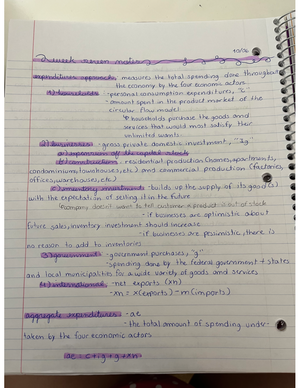 expenditures approach: measures the total spending done throughout
the economy by the four economic actors
1) households - personal consumption expenditures, "C"
- amount spent in the product market of the
circular flow model
households purchase the goods and
services that would most satisfy their
unlimited wants
2) businesses - gross private domestic investment, "Ig"
a) expansion of the capital stock
b) construction: residential production (homes, apartments,
condominiums, townhouses, etc.) and commercial production (factories,
offices, warehouses, etc.)
c) inventory investment - builds up the supply of its good(s)
with the expectation of selling it in the future
company doesn't want to tell customer a product is out of stock
- if businesses are optimistic about
future sales, inventory investment should increase
- if businesses are pessimistic, there is
no reason to add to inventories
3) government - government purchases, "g"
- spending done by the federal government + states
and local municipalities for a wide variety of goods and services
4) international - net exports (xn)
- xn = x (exports) - m (imports)
aggregate expenditures - ae
- the total amount of spending under-
taken by the four economic actors
ae = c + ig + g + xn